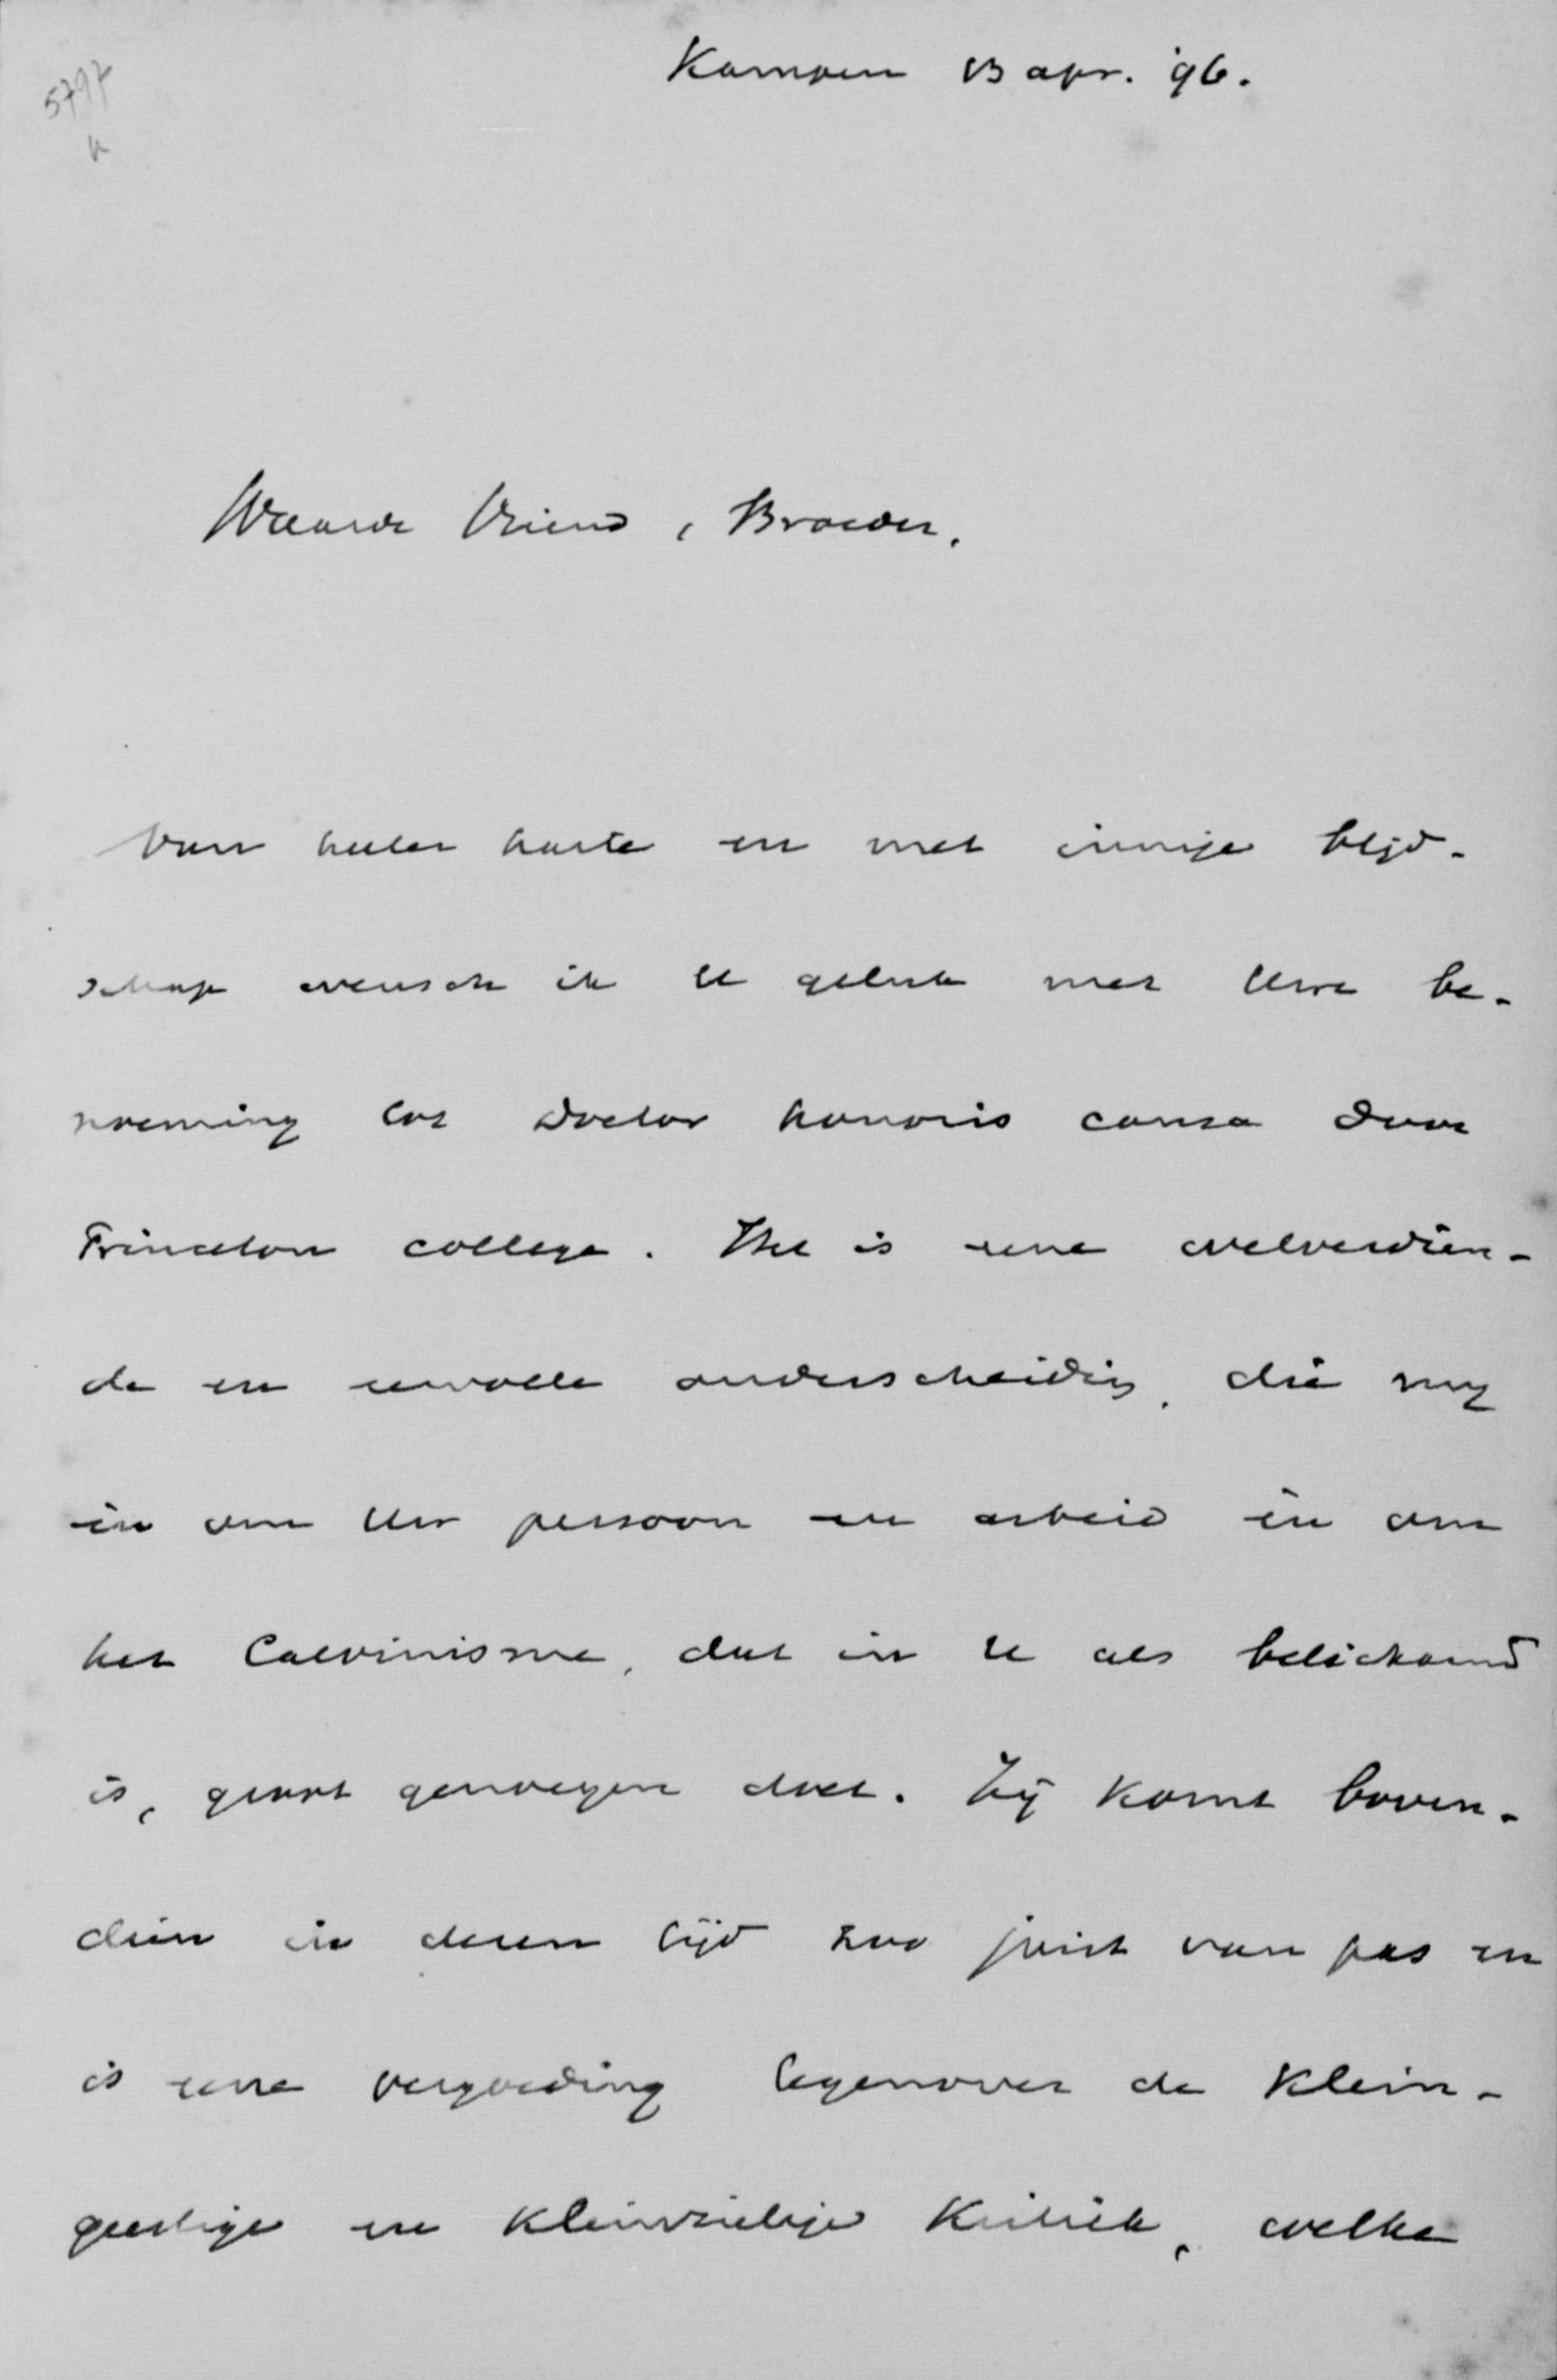 5797
Kampen 13 apr. '96.
Waarde Vriend, Broeder,
Van heeler harte en met innige blijd-
schap wensch ik U geluk met Uwe be-
noeming tot doctor honoris causa door
Princeton college. Het is eene welverdien-
de en eervolle onderscheiding, die mij
èn om Uw persoon en arbeid èn om
het Calvinisme, dat in U als belichaamd
is, groot genoegen doet. Zij komt boven-
dien in dezen tijd zoo juist van pas en
is eene vergoeding tegenover de klein-
geestige en kleinzielige kritiek, welke